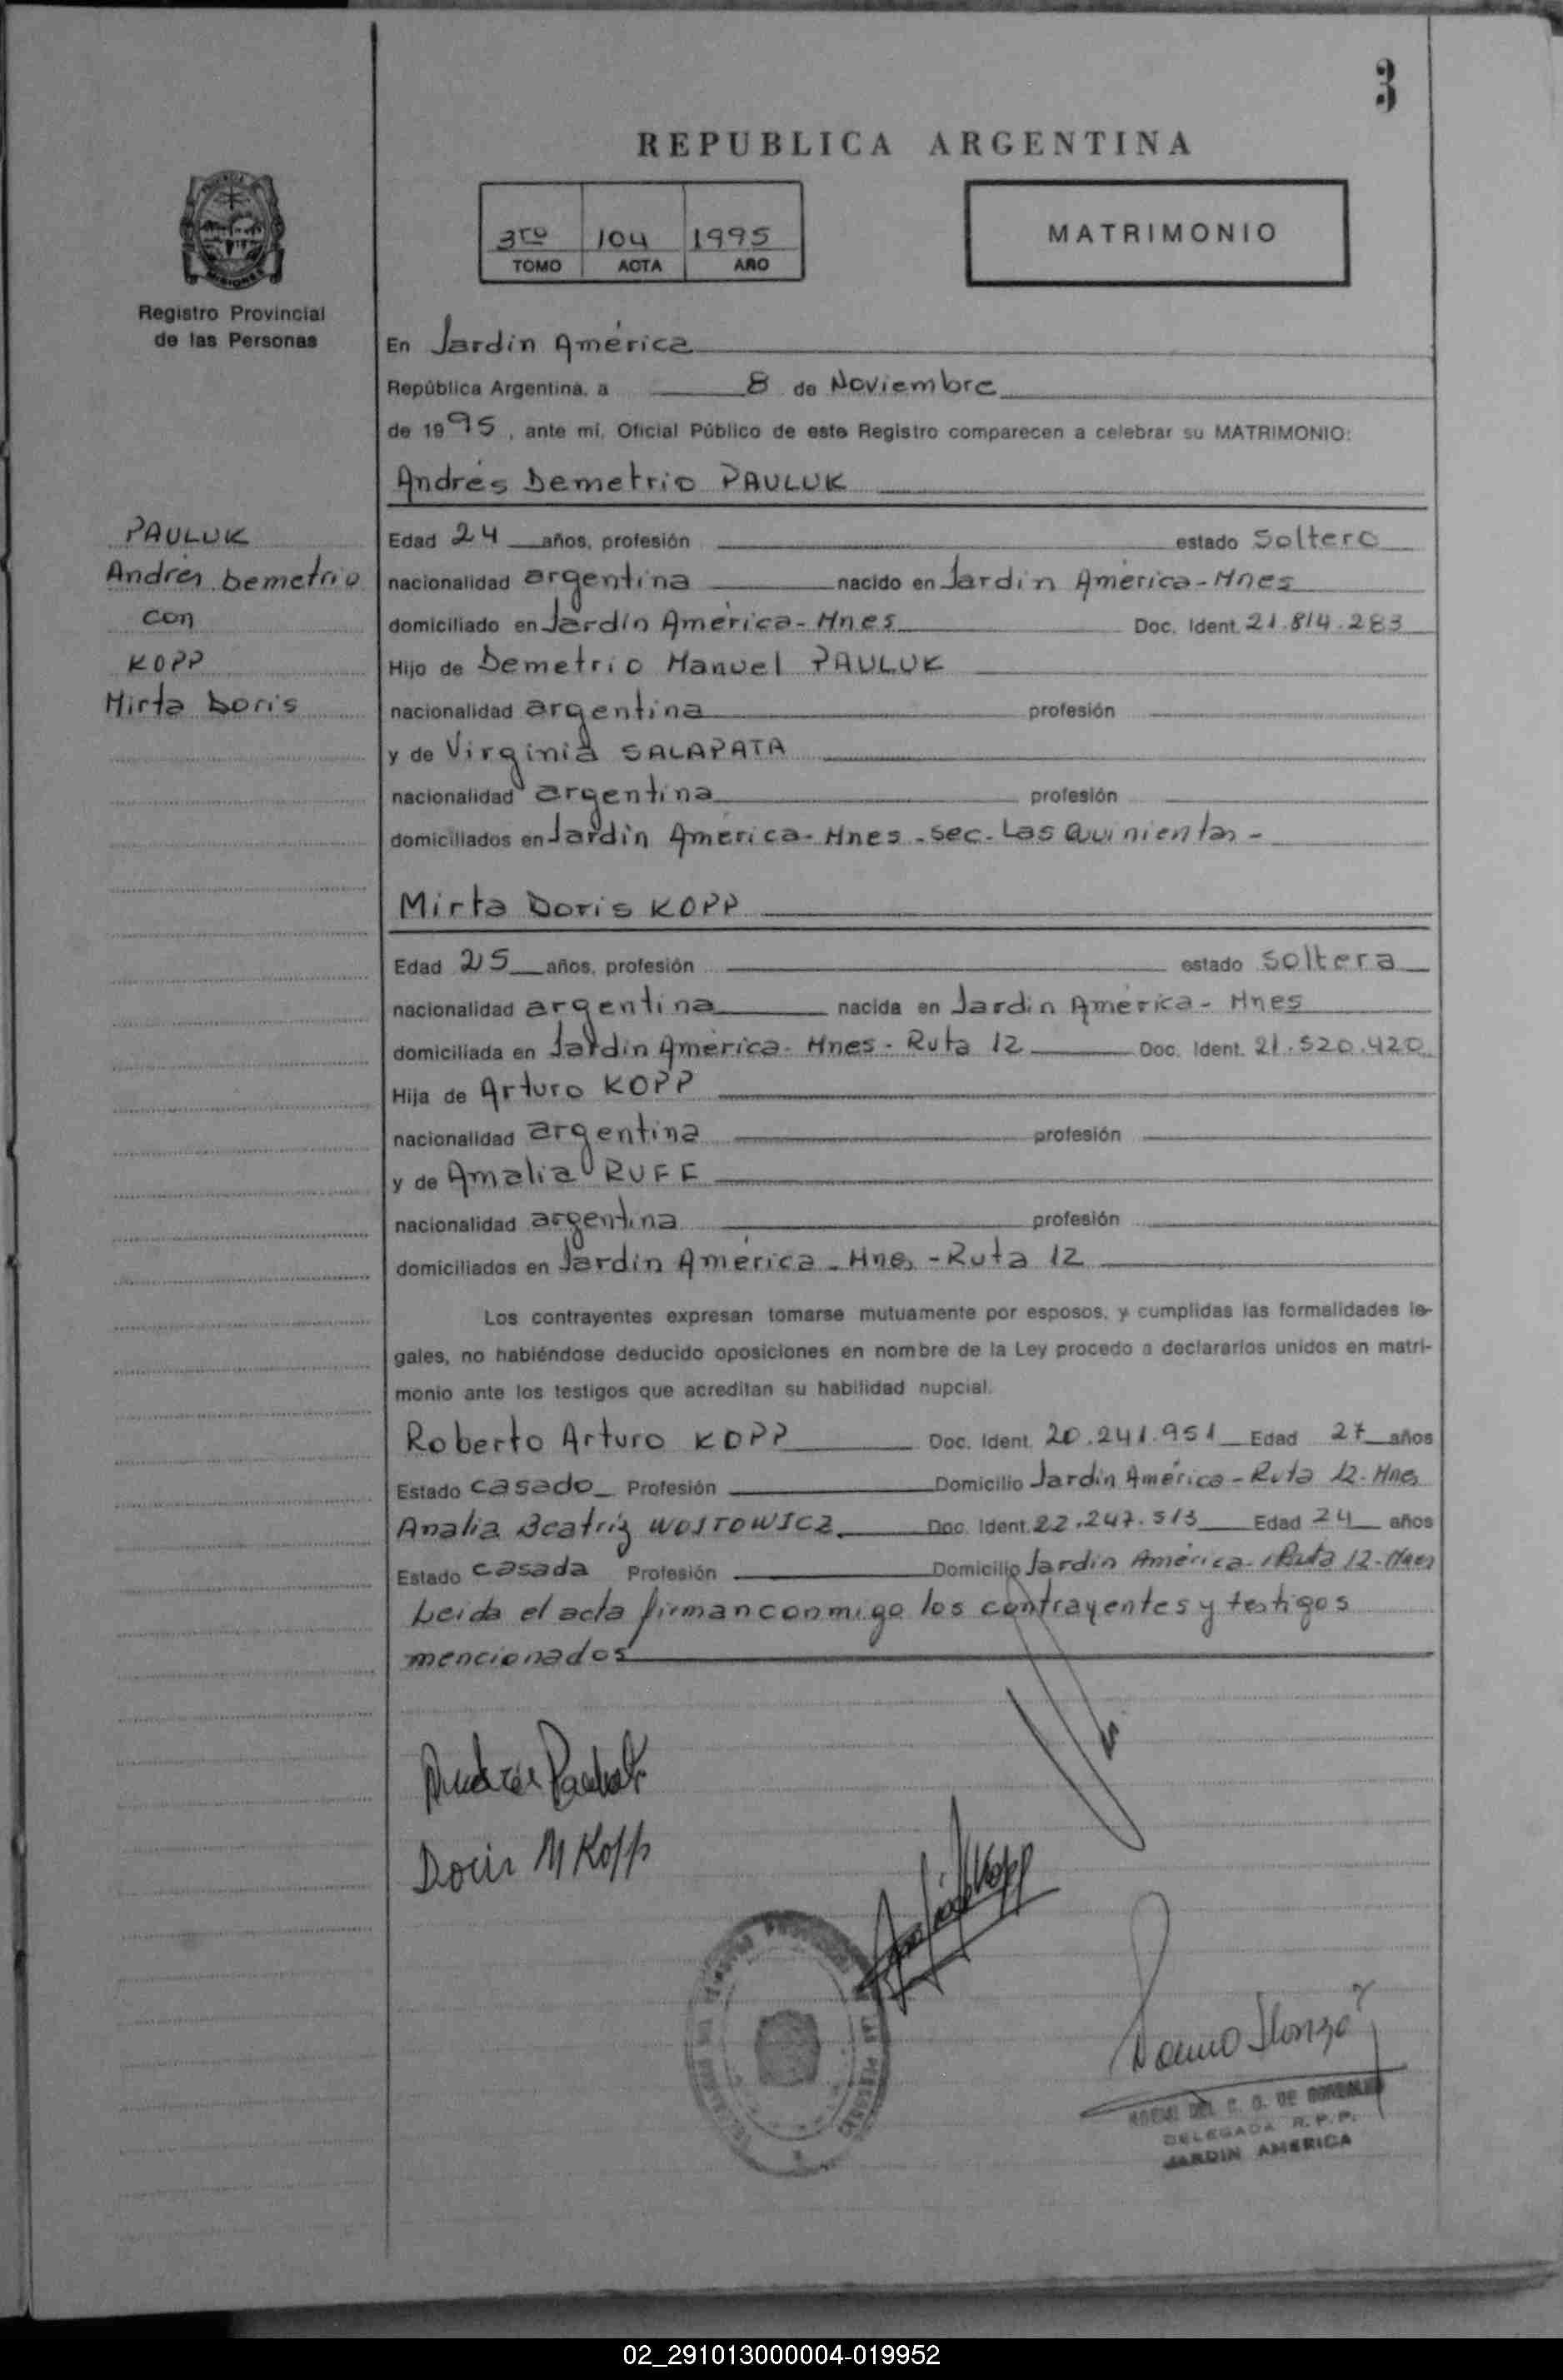 3
REPUBLICA ARGENTINA
3ro 104 1995
TOMO ACTA AÑO
MATRIMONIO
MISIONES
Registro Provincial
de las Personas
En Jardín América
República Argentina, a 8 de Noviembre
de 1995, ante mí, Oficial Público de este Registro comparecen a celebrar su MATRIMONIO:
Andrés Demetrio PAULUK
PAULUK
Andrés Demetrio
con
KOPP
Mirta Doris
Edad 24 años, profesión estado Soltero
nacionalidad argentina nacido en Jardín América-Mnes
domiciliado en Jardín América-Mnes Doc. Ident. 21.814.283
Hijo de Demetrio Manuel PAULUK
nacionalidad argentina profesión
y de Virginia SALAPATA
nacionalidad argentina profesión
domiciliados en Jardín América-Mnes-Sec. Las Quinientas-
Mirta Doris KOPP
Edad 25 años, profesión estado Soltera
nacionalidad argentina nacida en Jardín América- Mnes
domiciliada en Jardín América- Mnes- Ruta 12 Doc. Ident. 21.520.420
Hija de Arturo KOPP
nacionalidad argentina profesión
y de Amalia RUFF
nacionalidad argentina profesión
domiciliados en Jardín América-Mnes-Ruta 12
Los contrayentes expresan tomarse mutuamente por esposos, y cumplidas las formalidades le-
gales, no habiéndose deducido oposiciones en nombre de la Ley procedo a declararlos unidos en matri-
monio ante los testigos que acreditan su habilidad nupcial.
Roberto Arturo KOPP Doc. Ident. 20.241.951 Edad 27 años
Estado casado Profesión Domicilio Jardín América-Ruta 12-Mnes
Analia Beatriz WOITOWICZ Doc. Ident. 22.247.513 Edad 24 años
Estado casada Profesión Domicilio Jardín América-Ruta 12-Mnes
Leida el acta firman conmigo los contrayentes y testigos
mencionados
Andrés Pauluk
Doris M Kopp
Kopp
DEL C. G. DE GONZALEZ
DELEGADA R.P.P.
JARDIN AMERICA
02_291013000004-019952